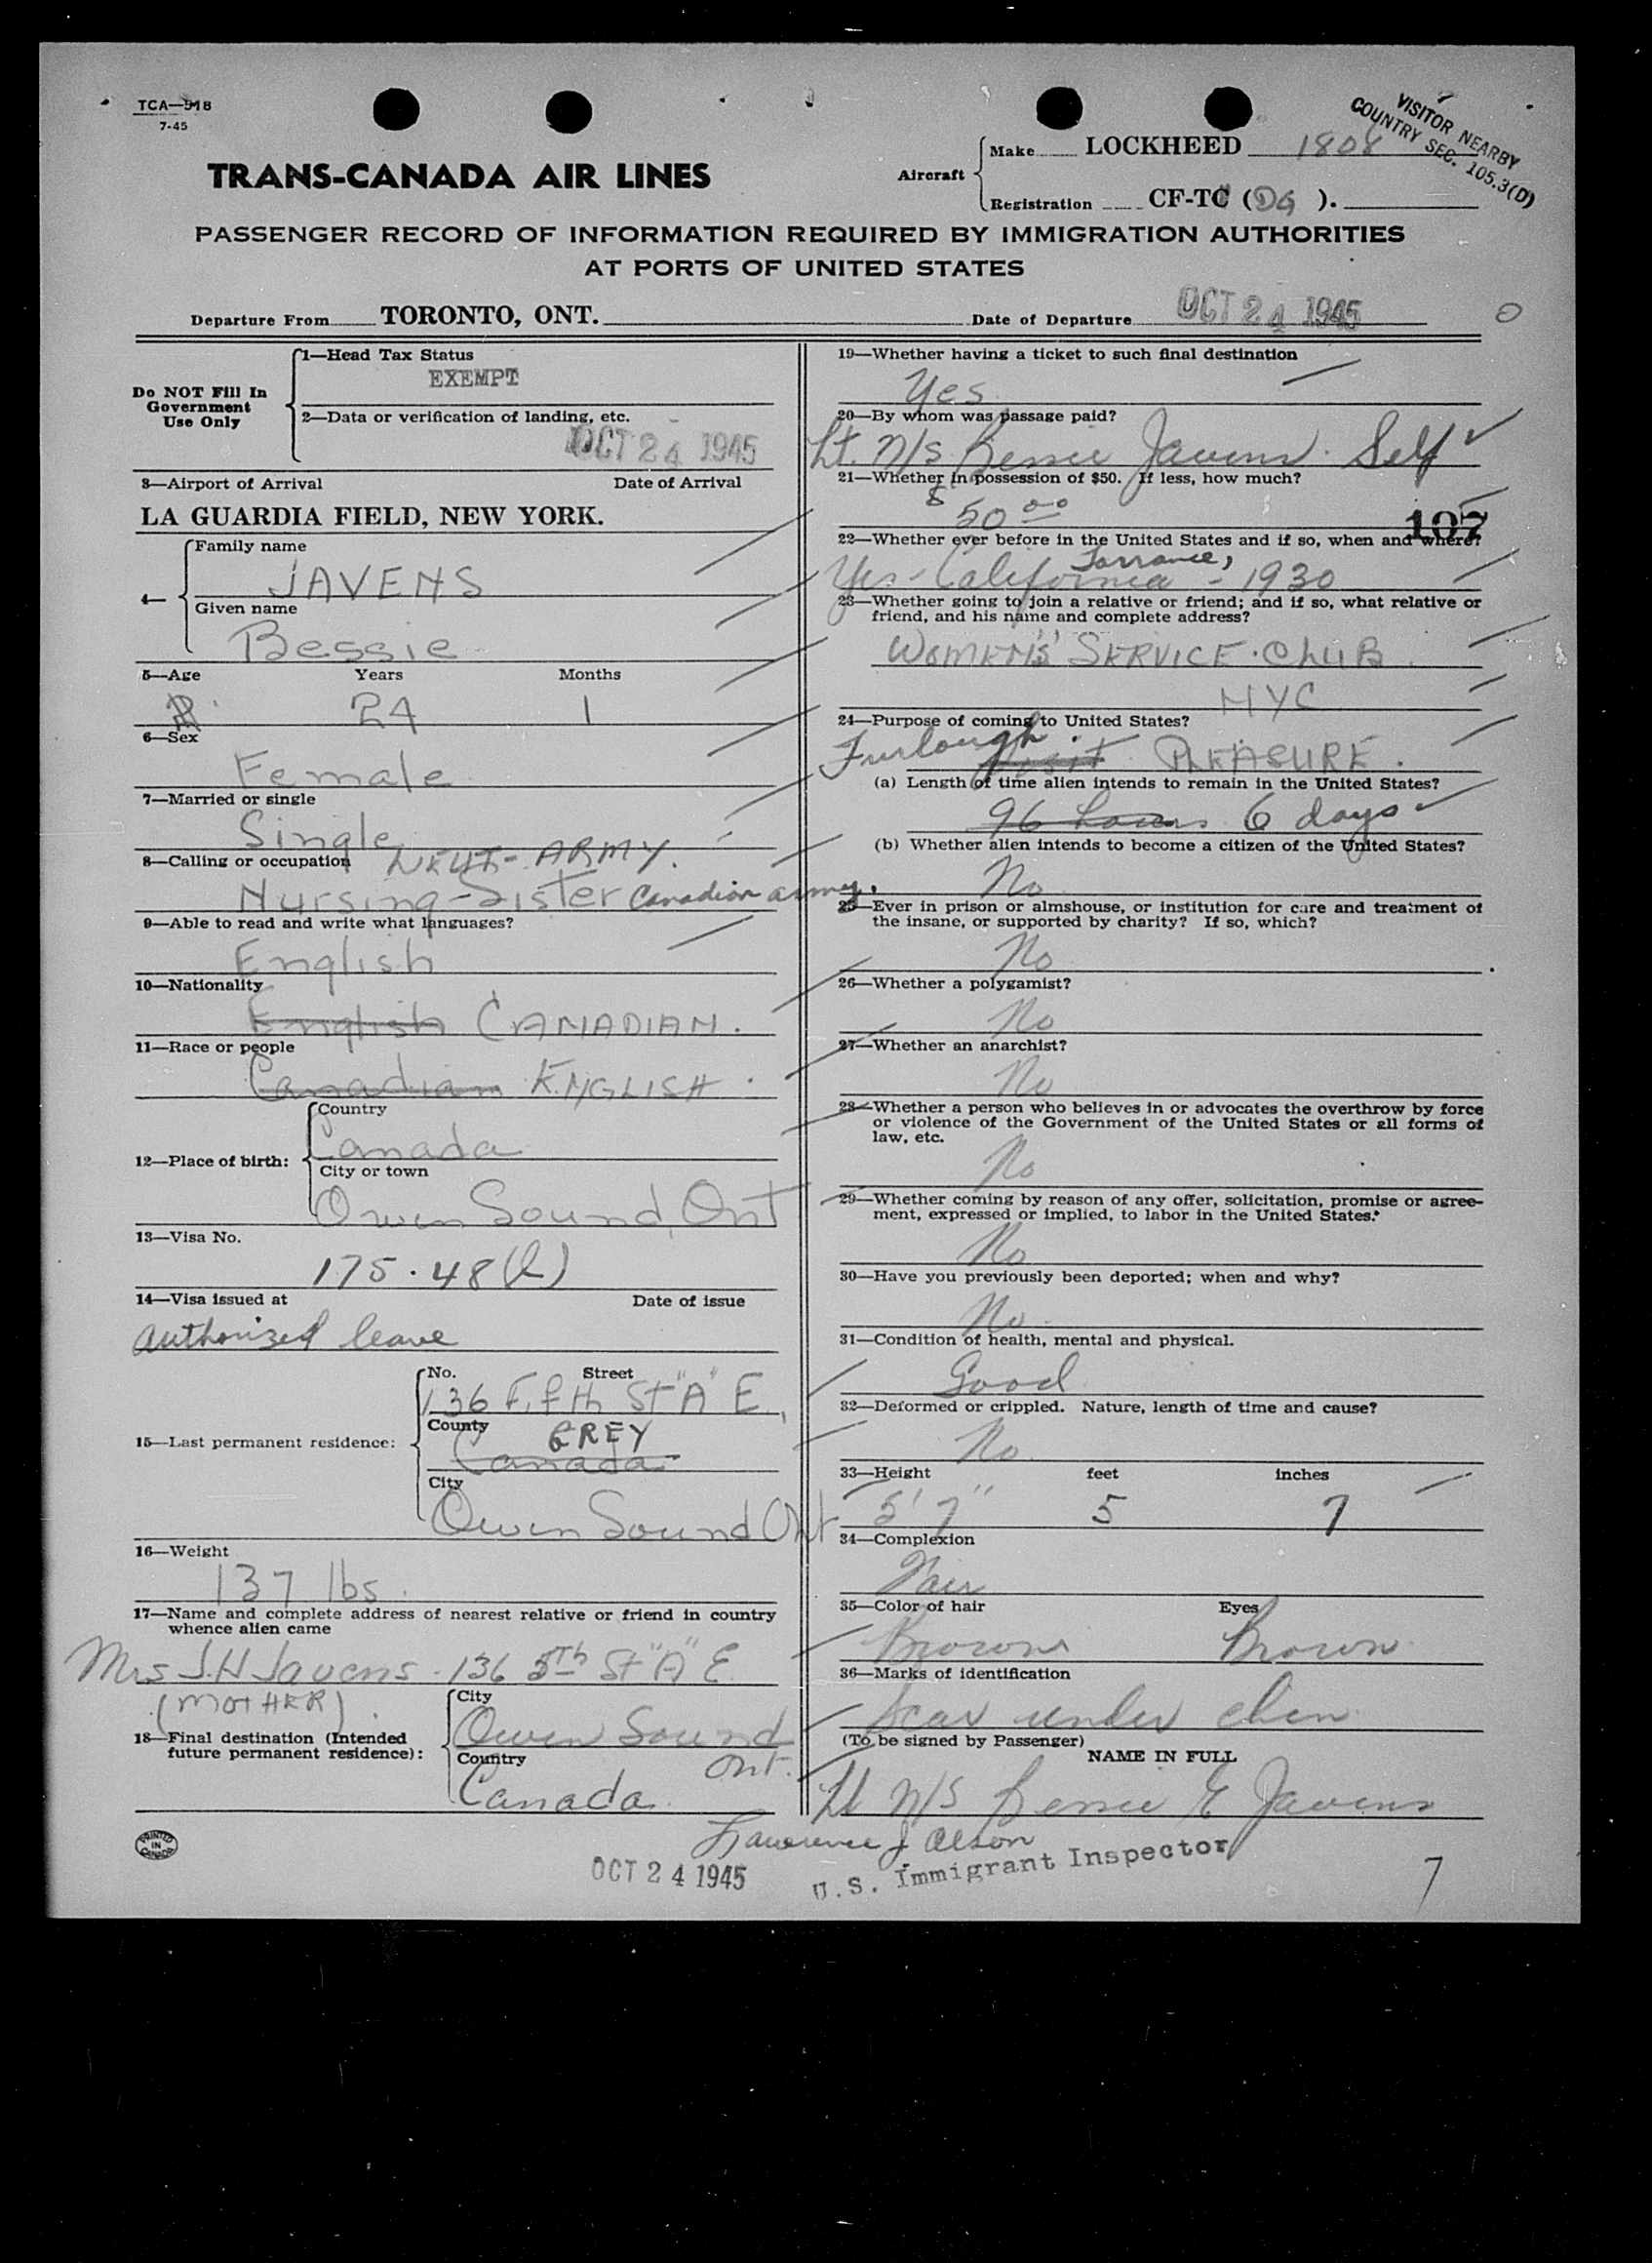 TCA—518
7-45
VISITOR NEARBY
COUNTRY SEC. 105.3(D)
TRANS-CANADA AIR LINES
Aircraft
Make LOCKHEED 1808
Registration CF-TC (DG ).
PASSENGER RECORD OF INFORMATION REQUIRED BY IMMIGRATION AUTHORITIES
AT PORTS OF UNITED STATES
Departure From TORONTO, ONT.
Date of Departure OCT 24 1945
Do NOT Fill In
Government
Use Only
1—Head Tax Status
EXEMPT
2—Data or verification of landing, etc.
OCT 24 1945
3—Airport of Arrival Date of Arrival
LA GUARDIA FIELD, NEW YORK.
4—
Family name
JAVENS
Given name
Bessie
5—Age Years Months
24 1
6—Sex
Female
7—Married or single
Single
8—Calling or occupation LIEUT- ARMY.
Nursing-Sister Canadian army.
9—Able to read and write what languages?
English
10—Nationality
English CANADIAN.
11—Race or people
Canadian ENGLISH
12—Place of birth:
Country
Canada
City or town
Owen Sound, Ont
13—Visa No.
175.48(l)
14—Visa issued at Date of issue
authorized leave
15—Last permanent residence:
No. Street
136 Fifth St "A" E.
County GREY
Canada
City
Owen Sound Ont
16—Weight
137 lbs.
17—Name and complete address of nearest relative or friend in country
whence alien came
Mrs J.H Javens - 136 5th St "A" E
(MOTHER)
18—Final destination (Intended
future permanent residence):
City
Owen Sound
Country Ont.
Canada
19—Whether having a ticket to such final destination
Yes
20—By whom was passage paid?
Lt. N/S Bessie Javens. Self
21—Whether in possession of $50. If less, how much?
$50 00
107
22—Whether ever before in the United States and if so, when and where?
Torrance,
Yes - California - 1930
23—Whether going to join a relative or friend; and if so, what relative or
friend, and his name and complete address?
WOMEN'S SERVICE CLUB
NYC
24—Purpose of coming to United States?
Furlough. Visit PLEASURE.
(a) Length of time alien intends to remain in the United States?
96 hours 6 days
(b) Whether alien intends to become a citizen of the United States?
No
25—Ever in prison or almshouse, or institution for care and treatment of
the insane, or supported by charity? If so, which?
No
26—Whether a polygamist?
No
27—Whether an anarchist?
No
28—Whether a person who believes in or advocates the overthrow by force
or violence of the Government of the United States or all forms of
law, etc.
No
29—Whether coming by reason of any offer, solicitation, promise or agree-
ment, expressed or implied, to labor in the United States.
No
30—Have you previously been deported; when and why?
No
31—Condition of health, mental and physical.
Good
32—Deformed or crippled. Nature, length of time and cause?
No
33—Height feet inches
5' 7" 5 7
34—Complexion
Fair
35—Color of hair Eyes
Brown Brown
36—Marks of identification
Scar under chin
(To be signed by Passenger)
NAME IN FULL
Lt N/S Bessie E Javens
Lawrence J Olson
OCT 24 1945
U.S. Immigrant Inspector
7
PRINTED
IN
CANADA